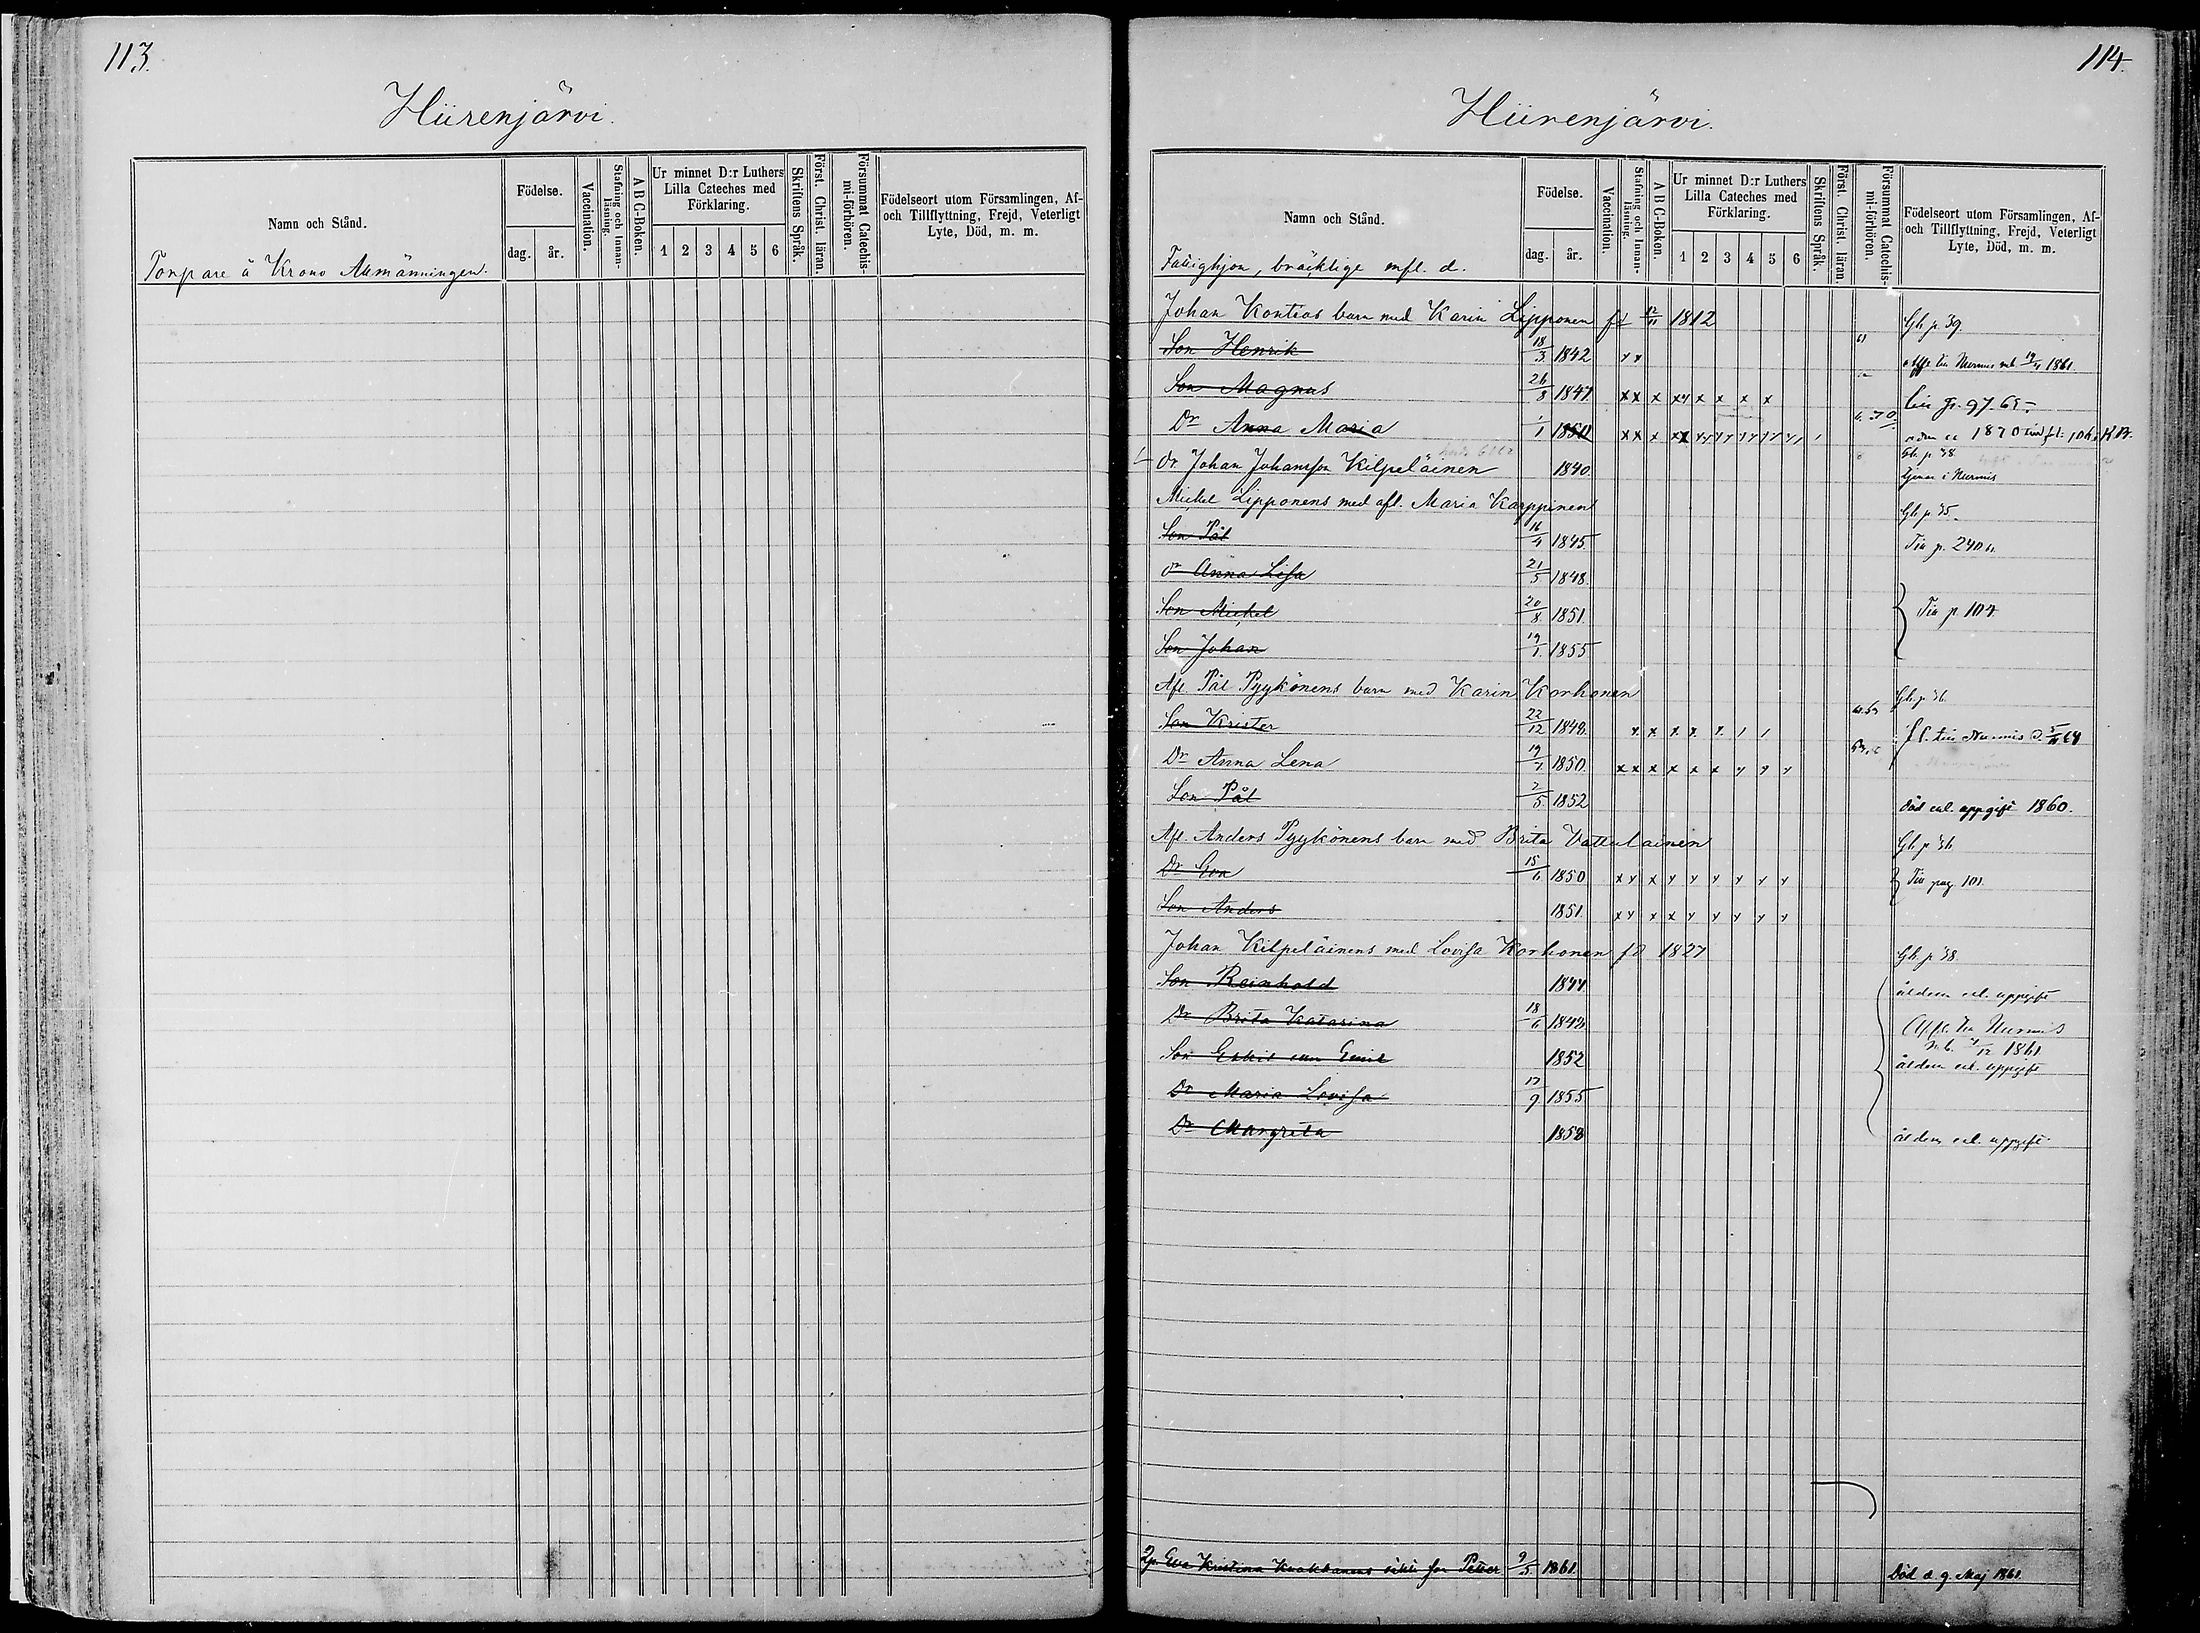 113.
Hiirenjärvi.
Namn och Stånd.
Födelse.
dag. år.
Vaccination.
Stafning och Innanläsning.
A B C-Boken.
Ur minnet D:r Luthers Lilla Cateches med Förklaring.
1 2 3 4 5 6
Skriftens Språk.
Först. Christ. läran.
Försummat Catechismi-förhören.
Födelseort utom Församlingen, Af- och Tillflyttning, Frejd, Veterligt Lyte, Död, m. m.
Torpare å Krono Allmänningen.
114.
Hiirenjärvi.
Namn och Stånd.
Födelse.
dag. år.
Vaccination.
Stafning och Innanläsning.
A B C-Boken.
Ur minnet D:r Luthers Lilla Cateches med Förklaring.
1 2 3 4 5 6
Skriftens Språk.
Först. Christ. läran.
Försummat Catechismi-förhören.
Födelseort utom Församlingen, Af- och Tillflyttning, Frejd, Veterligt Lyte, Död, m. m.
Fattighjon, bräcklige mfl. d.
Johan Kontios barn med Karin Lipponen fd 12/11 1812 Gb p. 39.
Son Henrik 18/3 1842 till Nurmis 1861
Son Magnus 26/8 1847 x x x x x x x x
Dr Anna Maria 1/1 1850 1870
Dr Johan Johansson Kilpeläinen 1840 Gb p 38. i Nurmis
Mickel Lipponens med afl. Maria Karppinen Gb p 35.
Son Pål 16/4 1845. Tin p. 240
Dr Anna Lisa 21/5 1848.
Son Mickel 20/8 1851. Tin p 107
Son Johan 19/1 1855
Afl. Pål Pyykönens barn med Karin Korhonen Gb p 36.
Son Krister 22/12 1848. till Nurmis 64
Dr Anna Lena 19/7 1850.
Son Pål 2/5 1852 död enl. uppgift 1860.
Afl. Anders Pyykönens barn med Brita Vattulainen Gb p 36
Dr Eva 15/6 1850 Tin pag. 101
Son Anders 1851.
Johan Kilpeläinens med Lovisa Korhonen fd 1827 Gb p 38.
Son Reinhold 1844 åldern enl. uppgift
Dr Brita Katarina 18/6 1849 Nurmis
Son 1852 1861 åldern enl. uppgift
Dr Maria Lovisa 17/9 1855.
Dr Margreta 1858 åldern enl. uppgift
Eva Kristina son Petter 9/5 1861. Död d. 9 Maj 1861